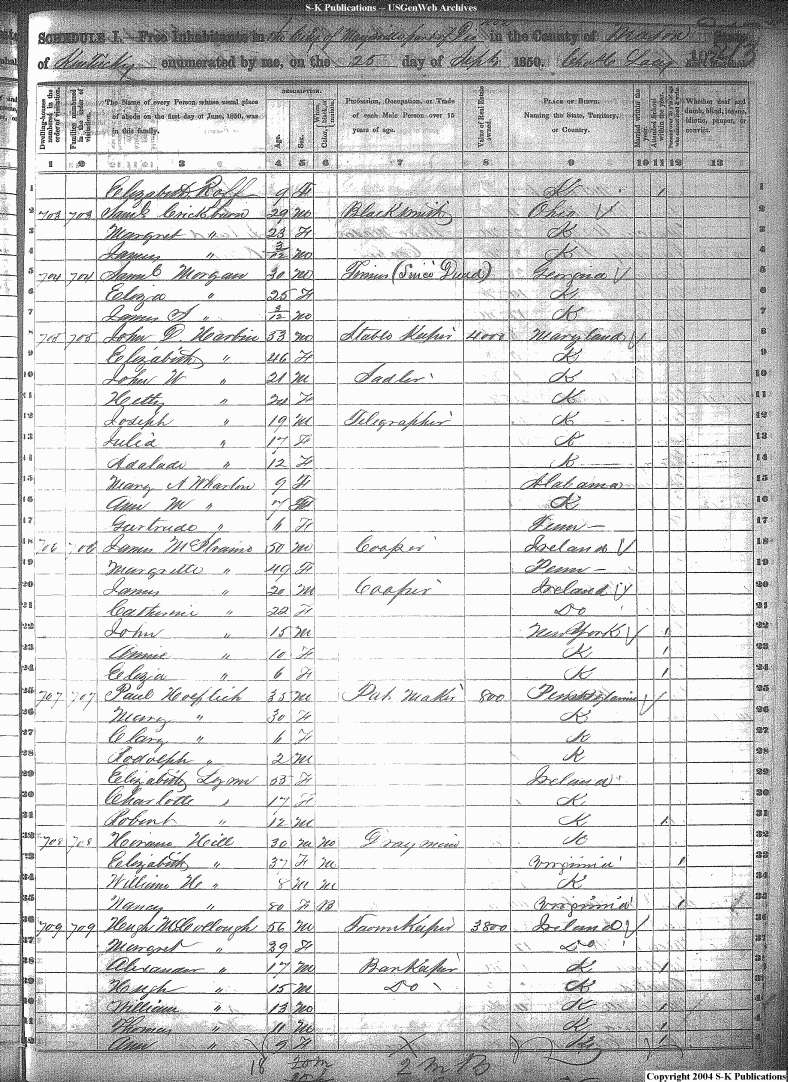 S-K Publications -- USGenWeb Archives
SCHEDULE I. Free Inhabitants in the City of Maysville part of in the County of Mason State
of Kentucky enumerated by me, on the 25 day of Sept 1850. Charles Lacy
DESCRIPTION.
Dwelling-houses numbered in the order of visitation. Families numbered in the order of visitation. The Name of every Person whose usual place of abode on the first day of June, 1850, was in this family. Age. Sex. Color Profession, Occupation, or Trade of each Male Person over 15 years of age. Value of Real Estate owned. PLACE OF BIRTH. Naming the State, Territory, or Country. Married within the year. Attended School within the year. Whether deaf and dumb, blind, insane, idiotic, pauper, or convict.
1 2 3 4 5 6 7 8 9 10 11 12 13
1 Elizabeth Roff 9 F K 1 1
2 703 703 Saml Crickburn 29 M Blacksmith Ohio 2
3 Margret " 23 F K 3
4 James " 3/12 M K 4
5 704 704 Saml Morgan 30 M (Since Dead) Georgia 5
6 Eliza " 25 F K 6
7 James S " 2/12 M K 7
8 705 705 John D Harbin 53 M Stable Keeper 4000 Maryland 8
9 Elizabeth " 46 F K 9
10 John W " 21 M Sadler K 10
11 Hetty " 21 F K 11
12 Joseph " 19 M Telegrapher K 12
13 Julia " 17 F K 13
14 Adalade " 12 F K 14
15 Mary A Wharton 9 F Alabama 15
16 Ann M " 7 F K 16
17 Gertrude " 6 F Penn 17
18 706 706 James McIlraine 50 M Cooper Ireland 18
19 Margrette " 49 F Penn 19
20 James " 20 M Cooper Ireland 20
21 Catherine " 22 F Do 21
22 John " 15 M New York 1 22
23 Annie " 10 F K 1 23
24 Eliza " 6 F K 1 24
25 707 707 Paul Hoeflich 35 M Pat. Maker 800 Pennsylvania 25
26 Mary " 30 F K 26
27 Clary " 6 F K 27
28 Rodolph " 2 M K 28
29 Elizabeth Lyon 53 F Ireland 29
30 Charlotte " 17 F K 30
31 Robert " 12 M K 1 31
32 708 708 Hiram Hill 30 M M Draymin K 32
33 Elizabeth " 37 F M Virginia 1 33
34 William H " 8 M M K 34
35 Nancy " 80 F B Virginia 1 35
36 709 709 Hugh McCollough 56 M Tavern Keeper 3800 Ireland 36
Margret " 39 F Do
Alexander " 17 M Bar Keeper K 1
Hugh " 15 M Do K
William " 13 M K 1
Thomas " 11 M K 1
Ann " 9 F K 1
18 20 M 2 M B
Copyright 2004 S-K Publications